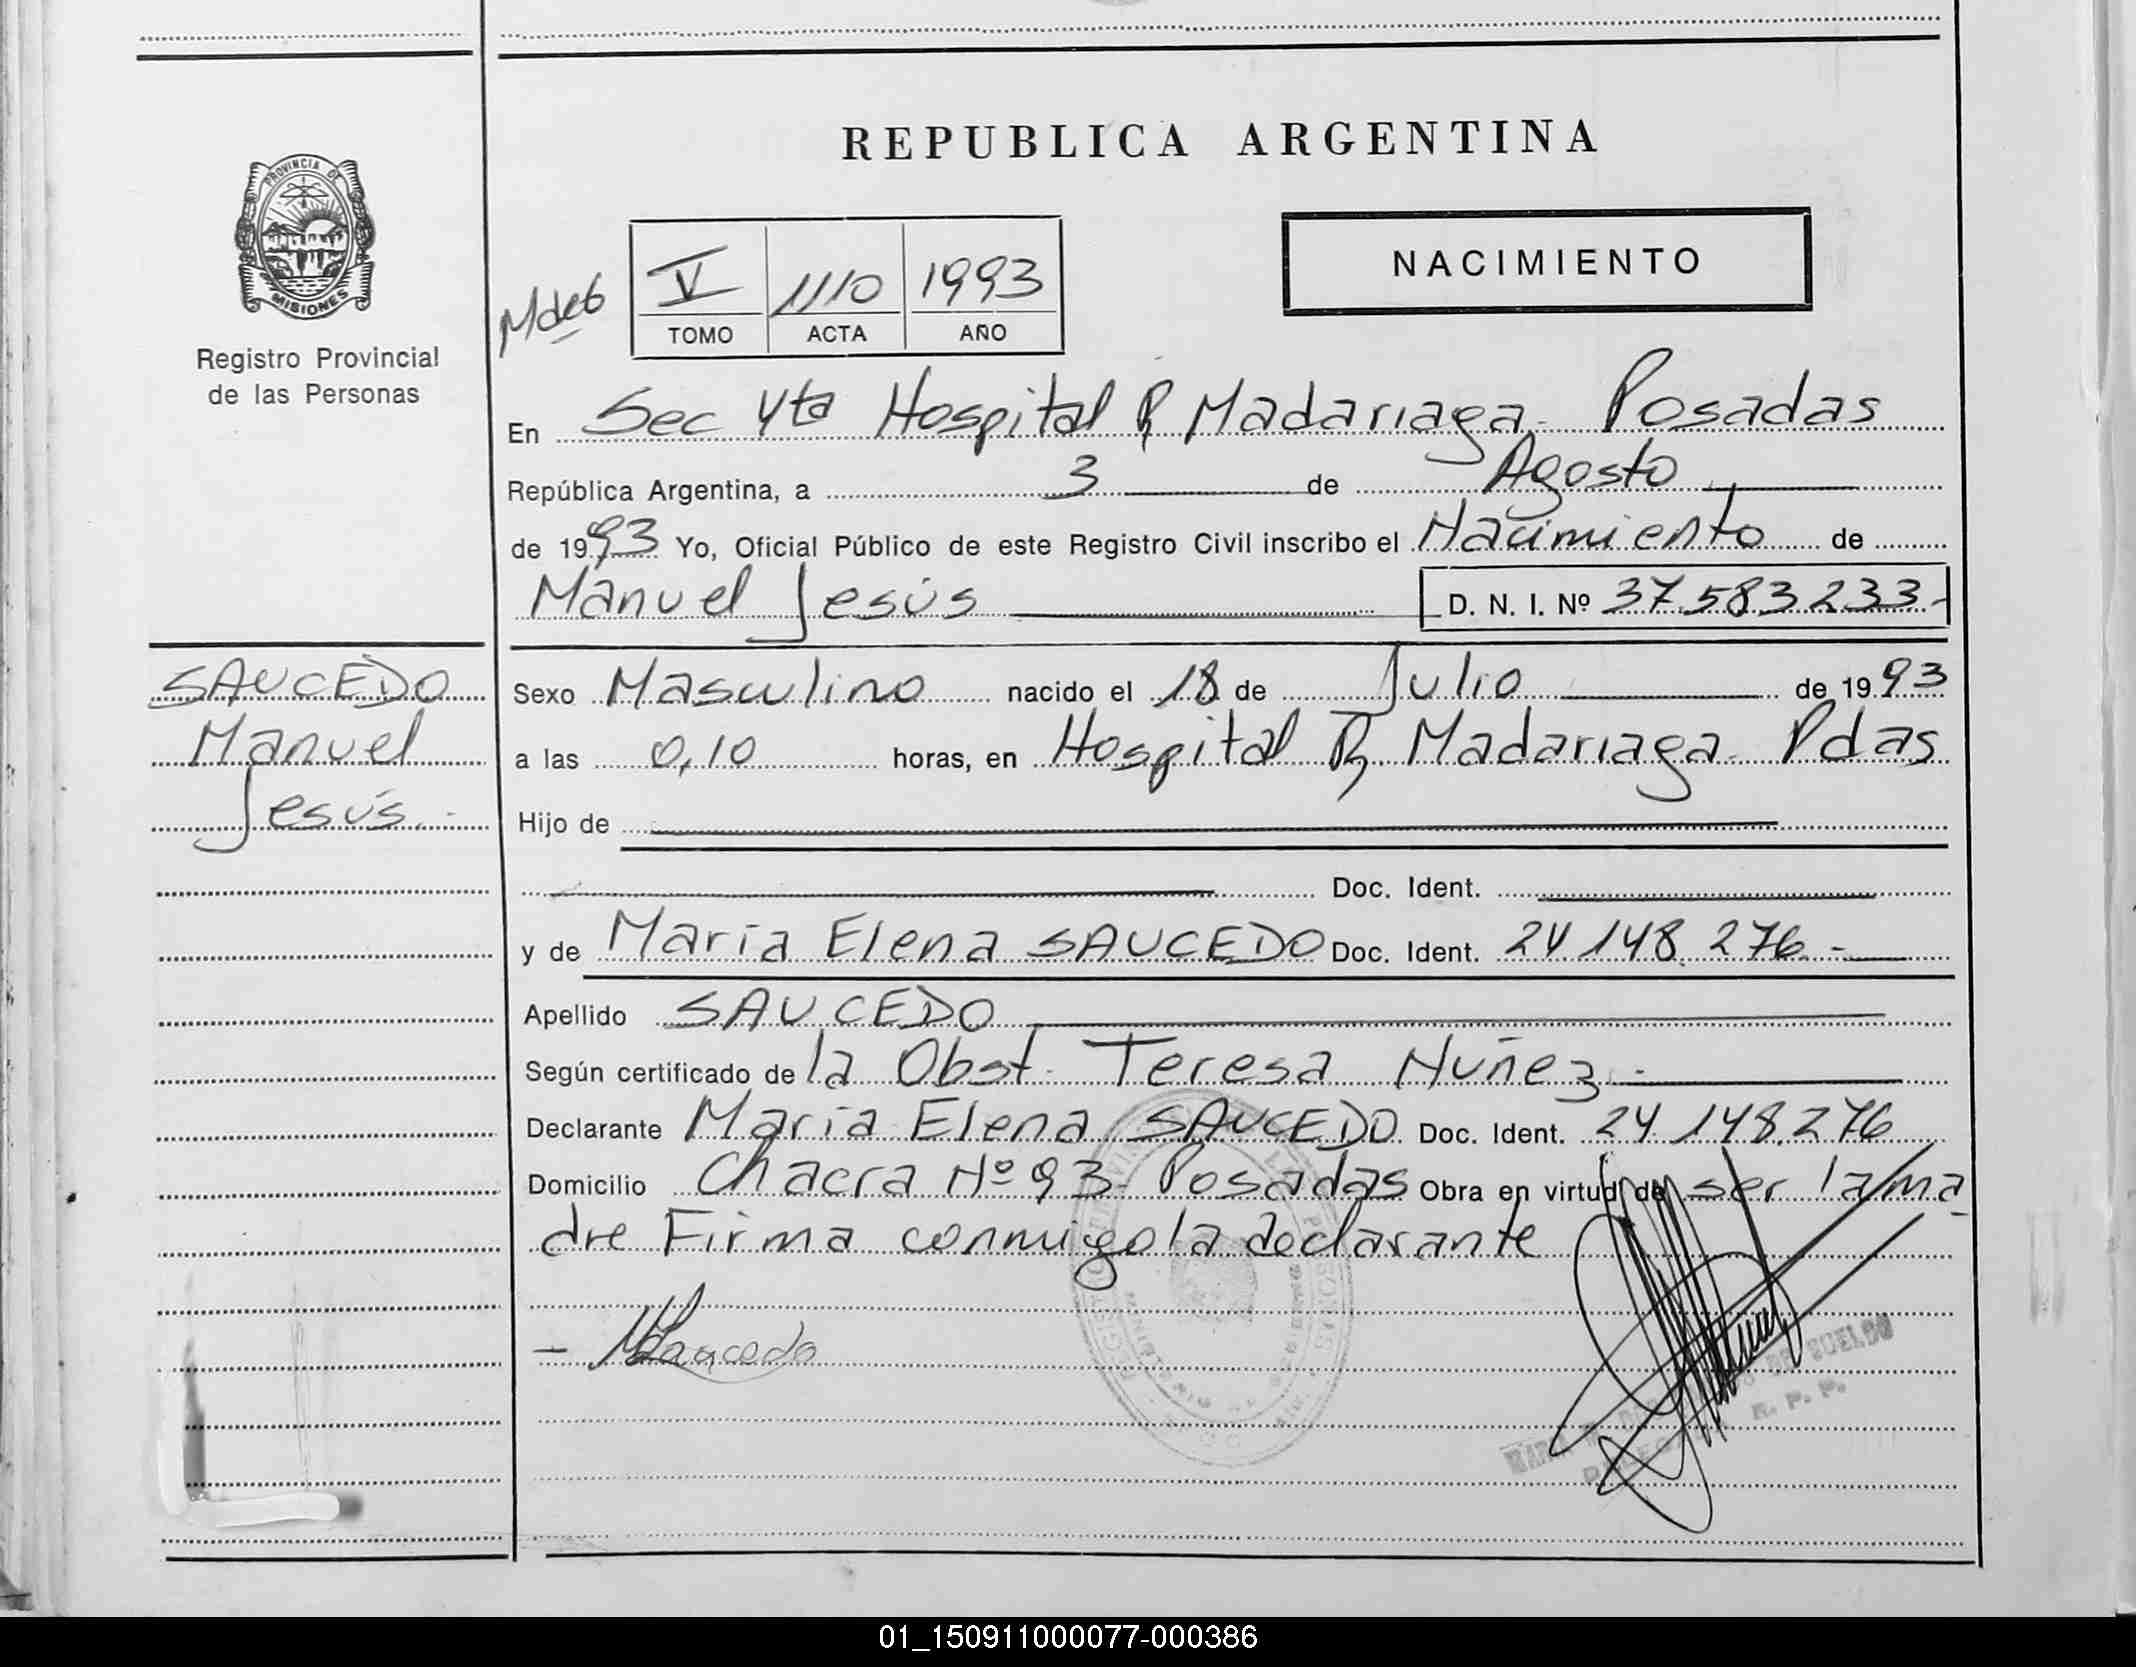 REPUBLICA ARGENTINA
PROVINCIA DE
MISIONES
Registro Provincial
de las Personas
NACIMIENTO
V 1110 1993
TOMO ACTA AÑO
En Sec 4ta Hospital R Madariaga. Posadas
República Argentina, a 3 de Agosto
de 1993 Yo, Oficial Público de este Registro Civil inscribo el Nacimiento de
Manuel Jesús D. N. I. Nº 37.583.233.-
SAUCEDO
Manuel
Jesús.-
Sexo Masculino nacido el 18 de Julio de 1993
a las 0,10 horas, en Hospital R. Madariaga. Pdas
Hijo de
Doc. Ident.
y de María Elena SAUCEDO Doc. Ident. 24.148.276.-
Apellido SAUCEDO
Según certificado de la Obst. Teresa Nuñez.-
Declarante María Elena SAUCEDO Doc. Ident. 24.148.276
Domicilio Chacra Nº 93- Posadas Obra en virtud de ser la ma
dre Firma conmigo la declarante
- MSaucedo
R. P. P.
01_150911000077-000386